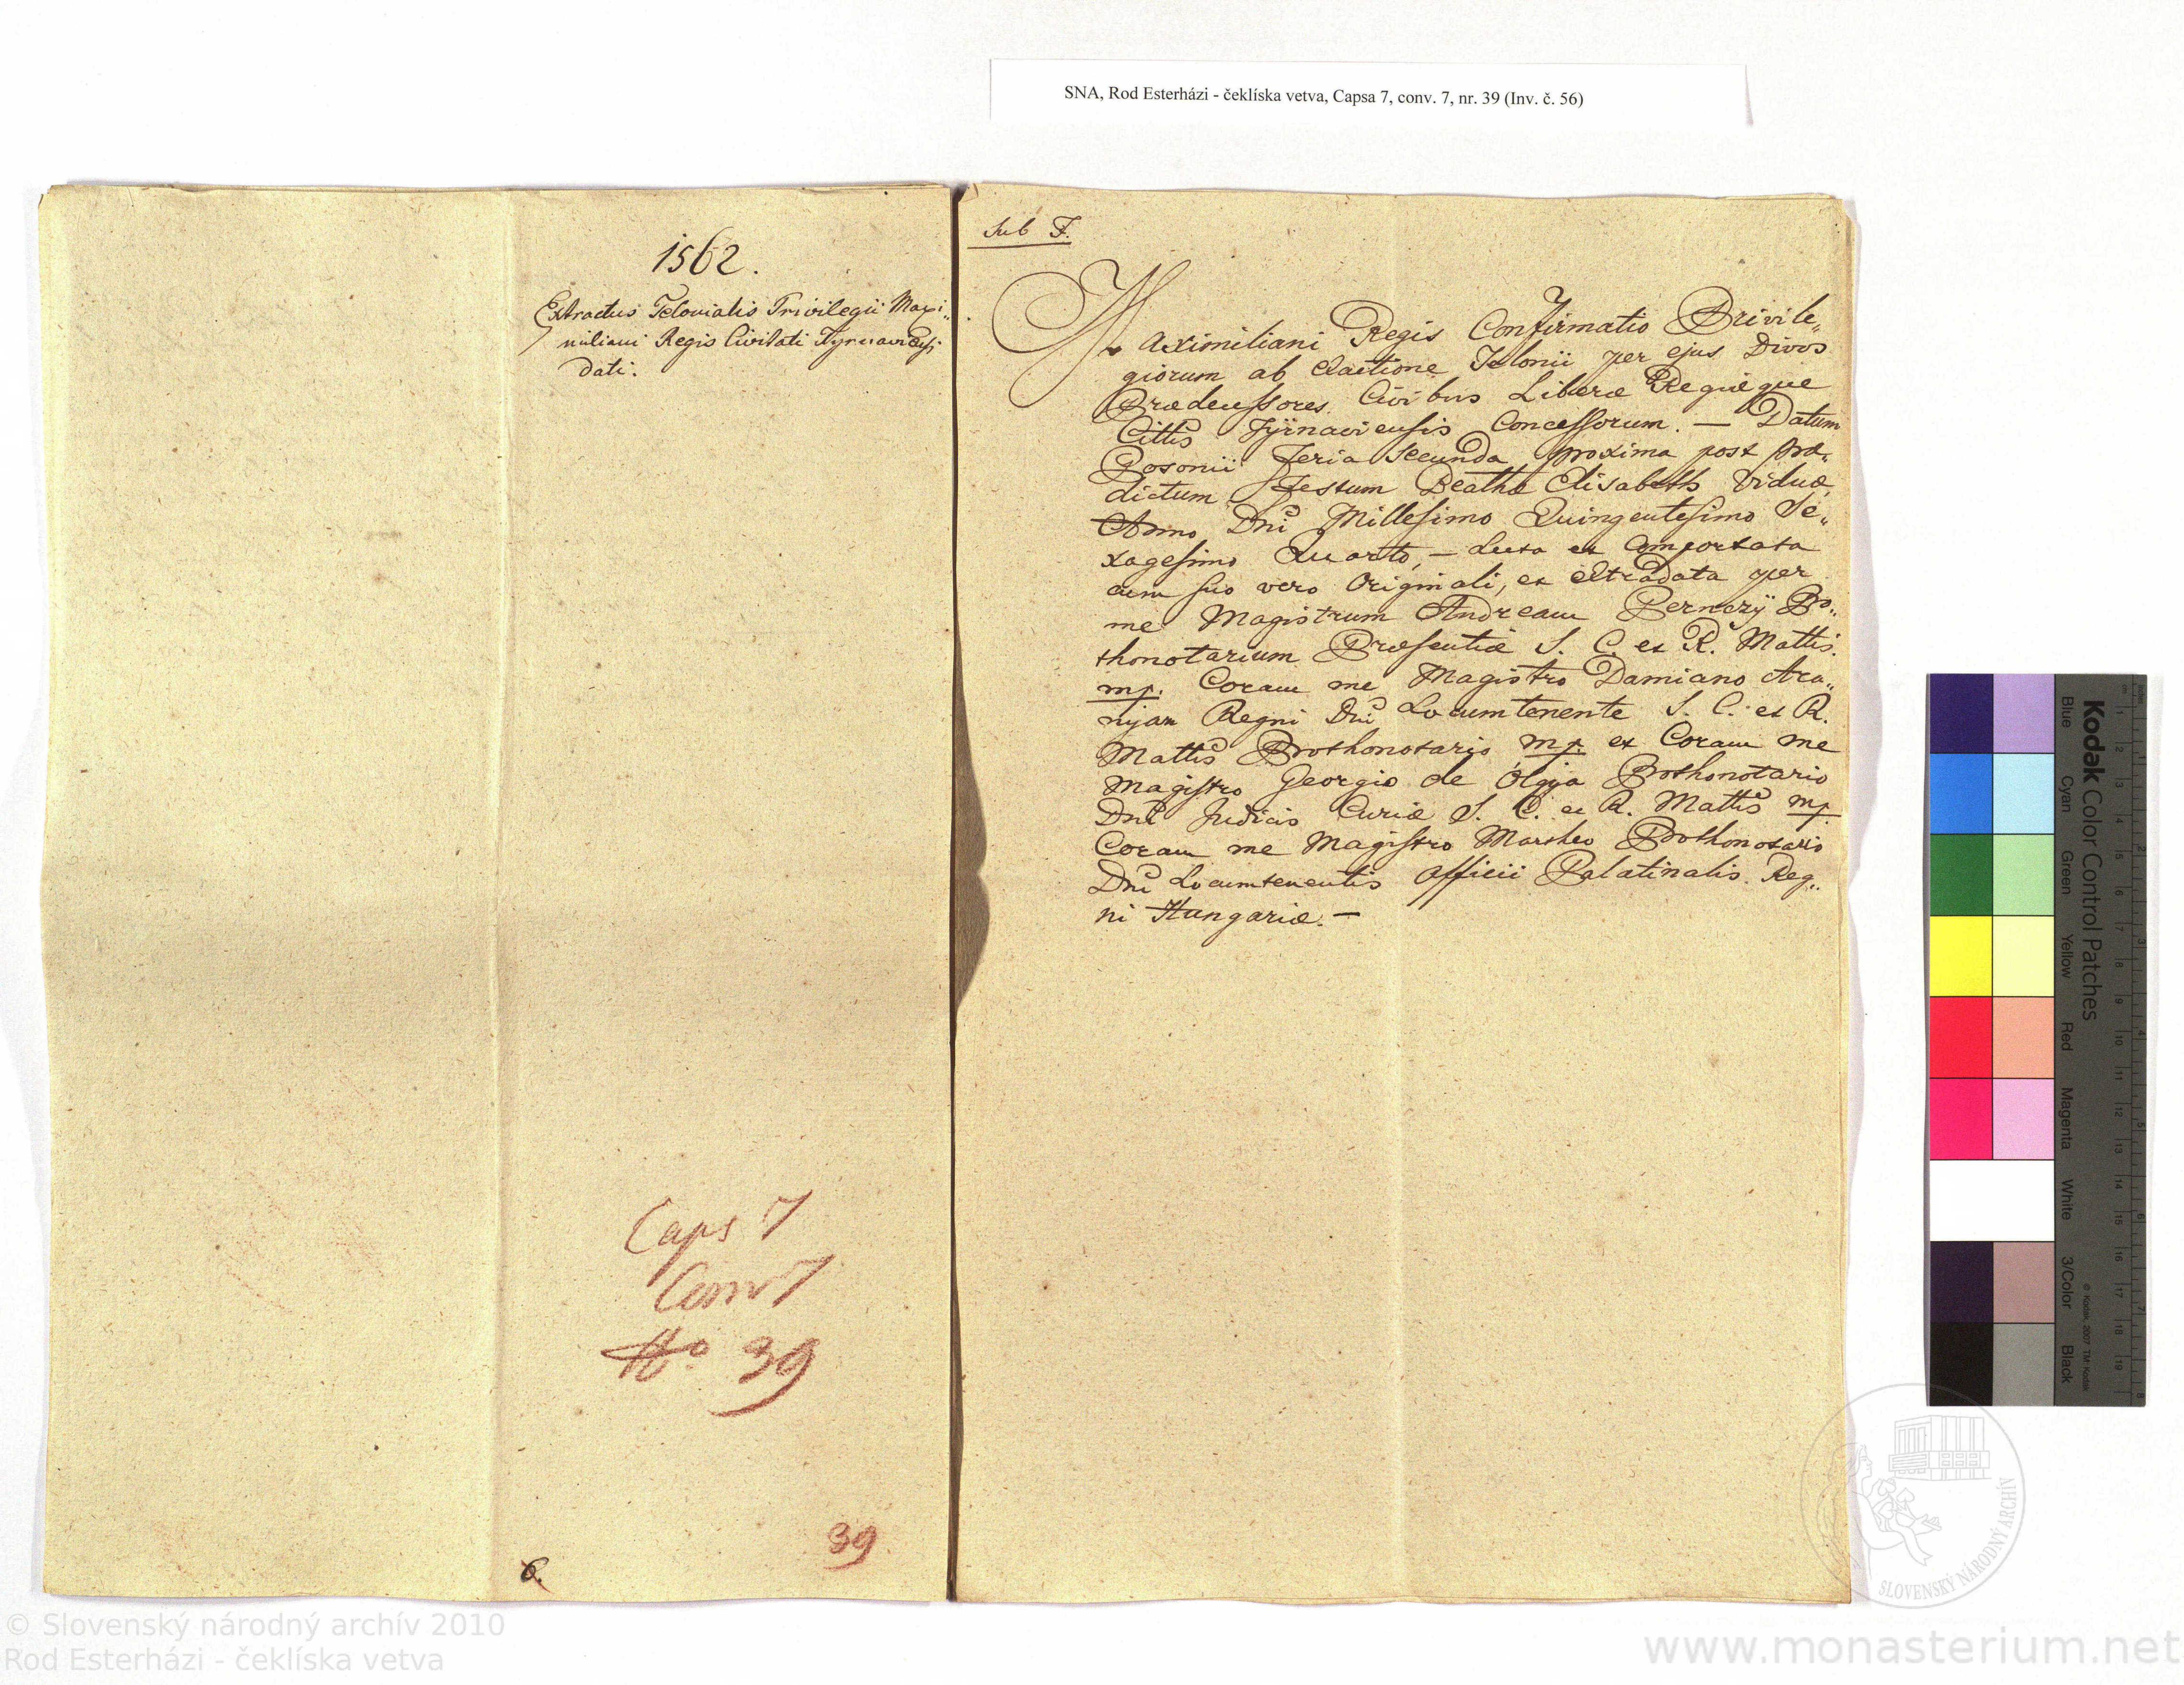 SNA, Rod Esterházi - čeklíska vetva, Capsa 7, conv. 7, nr. 39 (Inv. č. 56)
1562.
Extractus Telonialis Privilegii Maxi„
miliani Regis Civitati Tyrnaviensi
dati.
Caps 7
Conv 7
No 39
39
6.
Sub F.
Maximiliani Regis Confirmatio Privile„
giorum ab Exactione Telonii per ejus Divos
Prædecessores Civibus Liberæ Regiæque
Cittis Tÿrnaviensis Concessorum. — Datum
Posonii Feria Secunda proxima post præ„
dictum Festum Beathæ Elisabeth Viduæ
Anno Dni Millesimo Quingentesimo Se„
xagesimo Quarto, — Lecta et Comportata
cum suo vero Originali, et extradata per
me Magistrum Andream Pernezÿ Pro„
thonotarium Præsentiæ S. C. et R. Mattis.
mp. Coram me Magistro Damiano Ara„
nÿan Regni Dni Locumtenente S. C. et R.
Mattis Prothonotario mp. et Coram me
Magistro Georgio de Olgÿa Prothonotario
Dni Judicis Curiæ S. C. et R. Mattis mp.
Coram me Magistro Martheo Prothonotario
Dni Locumtenentis Officii Palatinalis Reg„
ni Hungariæ. —
Kodak Color Control Patches
Blue Cyan Green Yellow Red Magenta White 3/Color Black
© Kodak, 2007 TM: Kodak
SLOVENSKÝ NÁRODNÝ ARCHÍV
© Slovenský národný archív 2010
Rod Esterházi - čeklíska vetva
www.monasterium.net